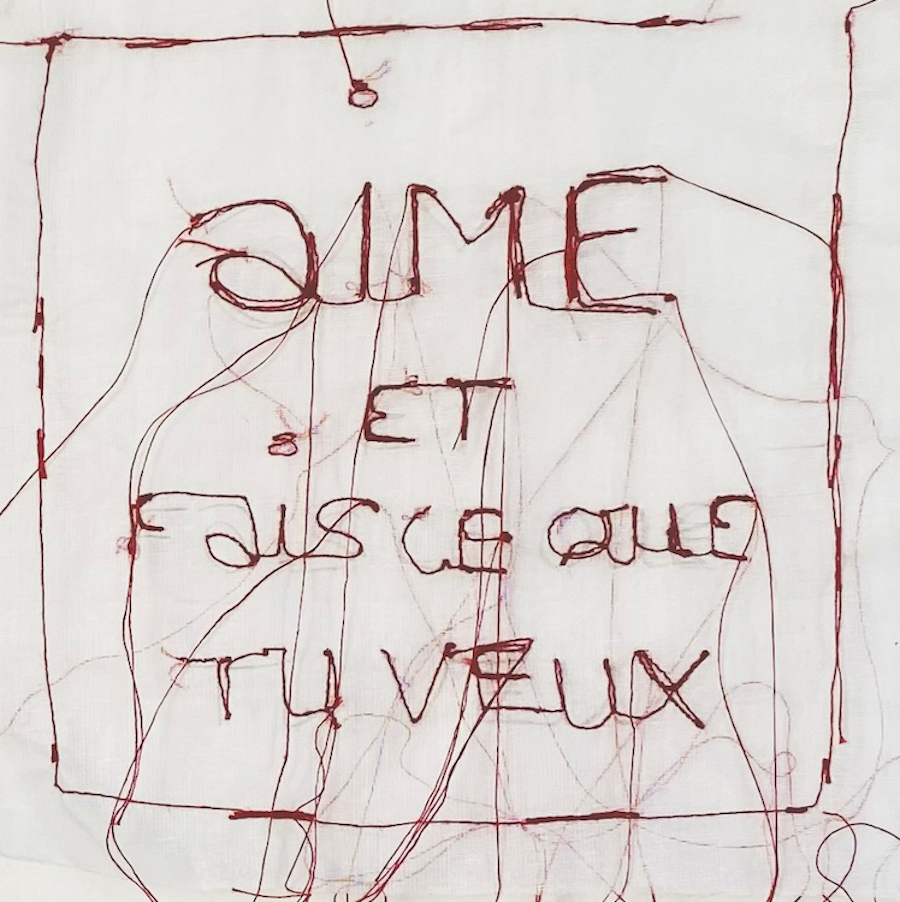 aIME
ET
FaIS CE QUE
TU VEUX